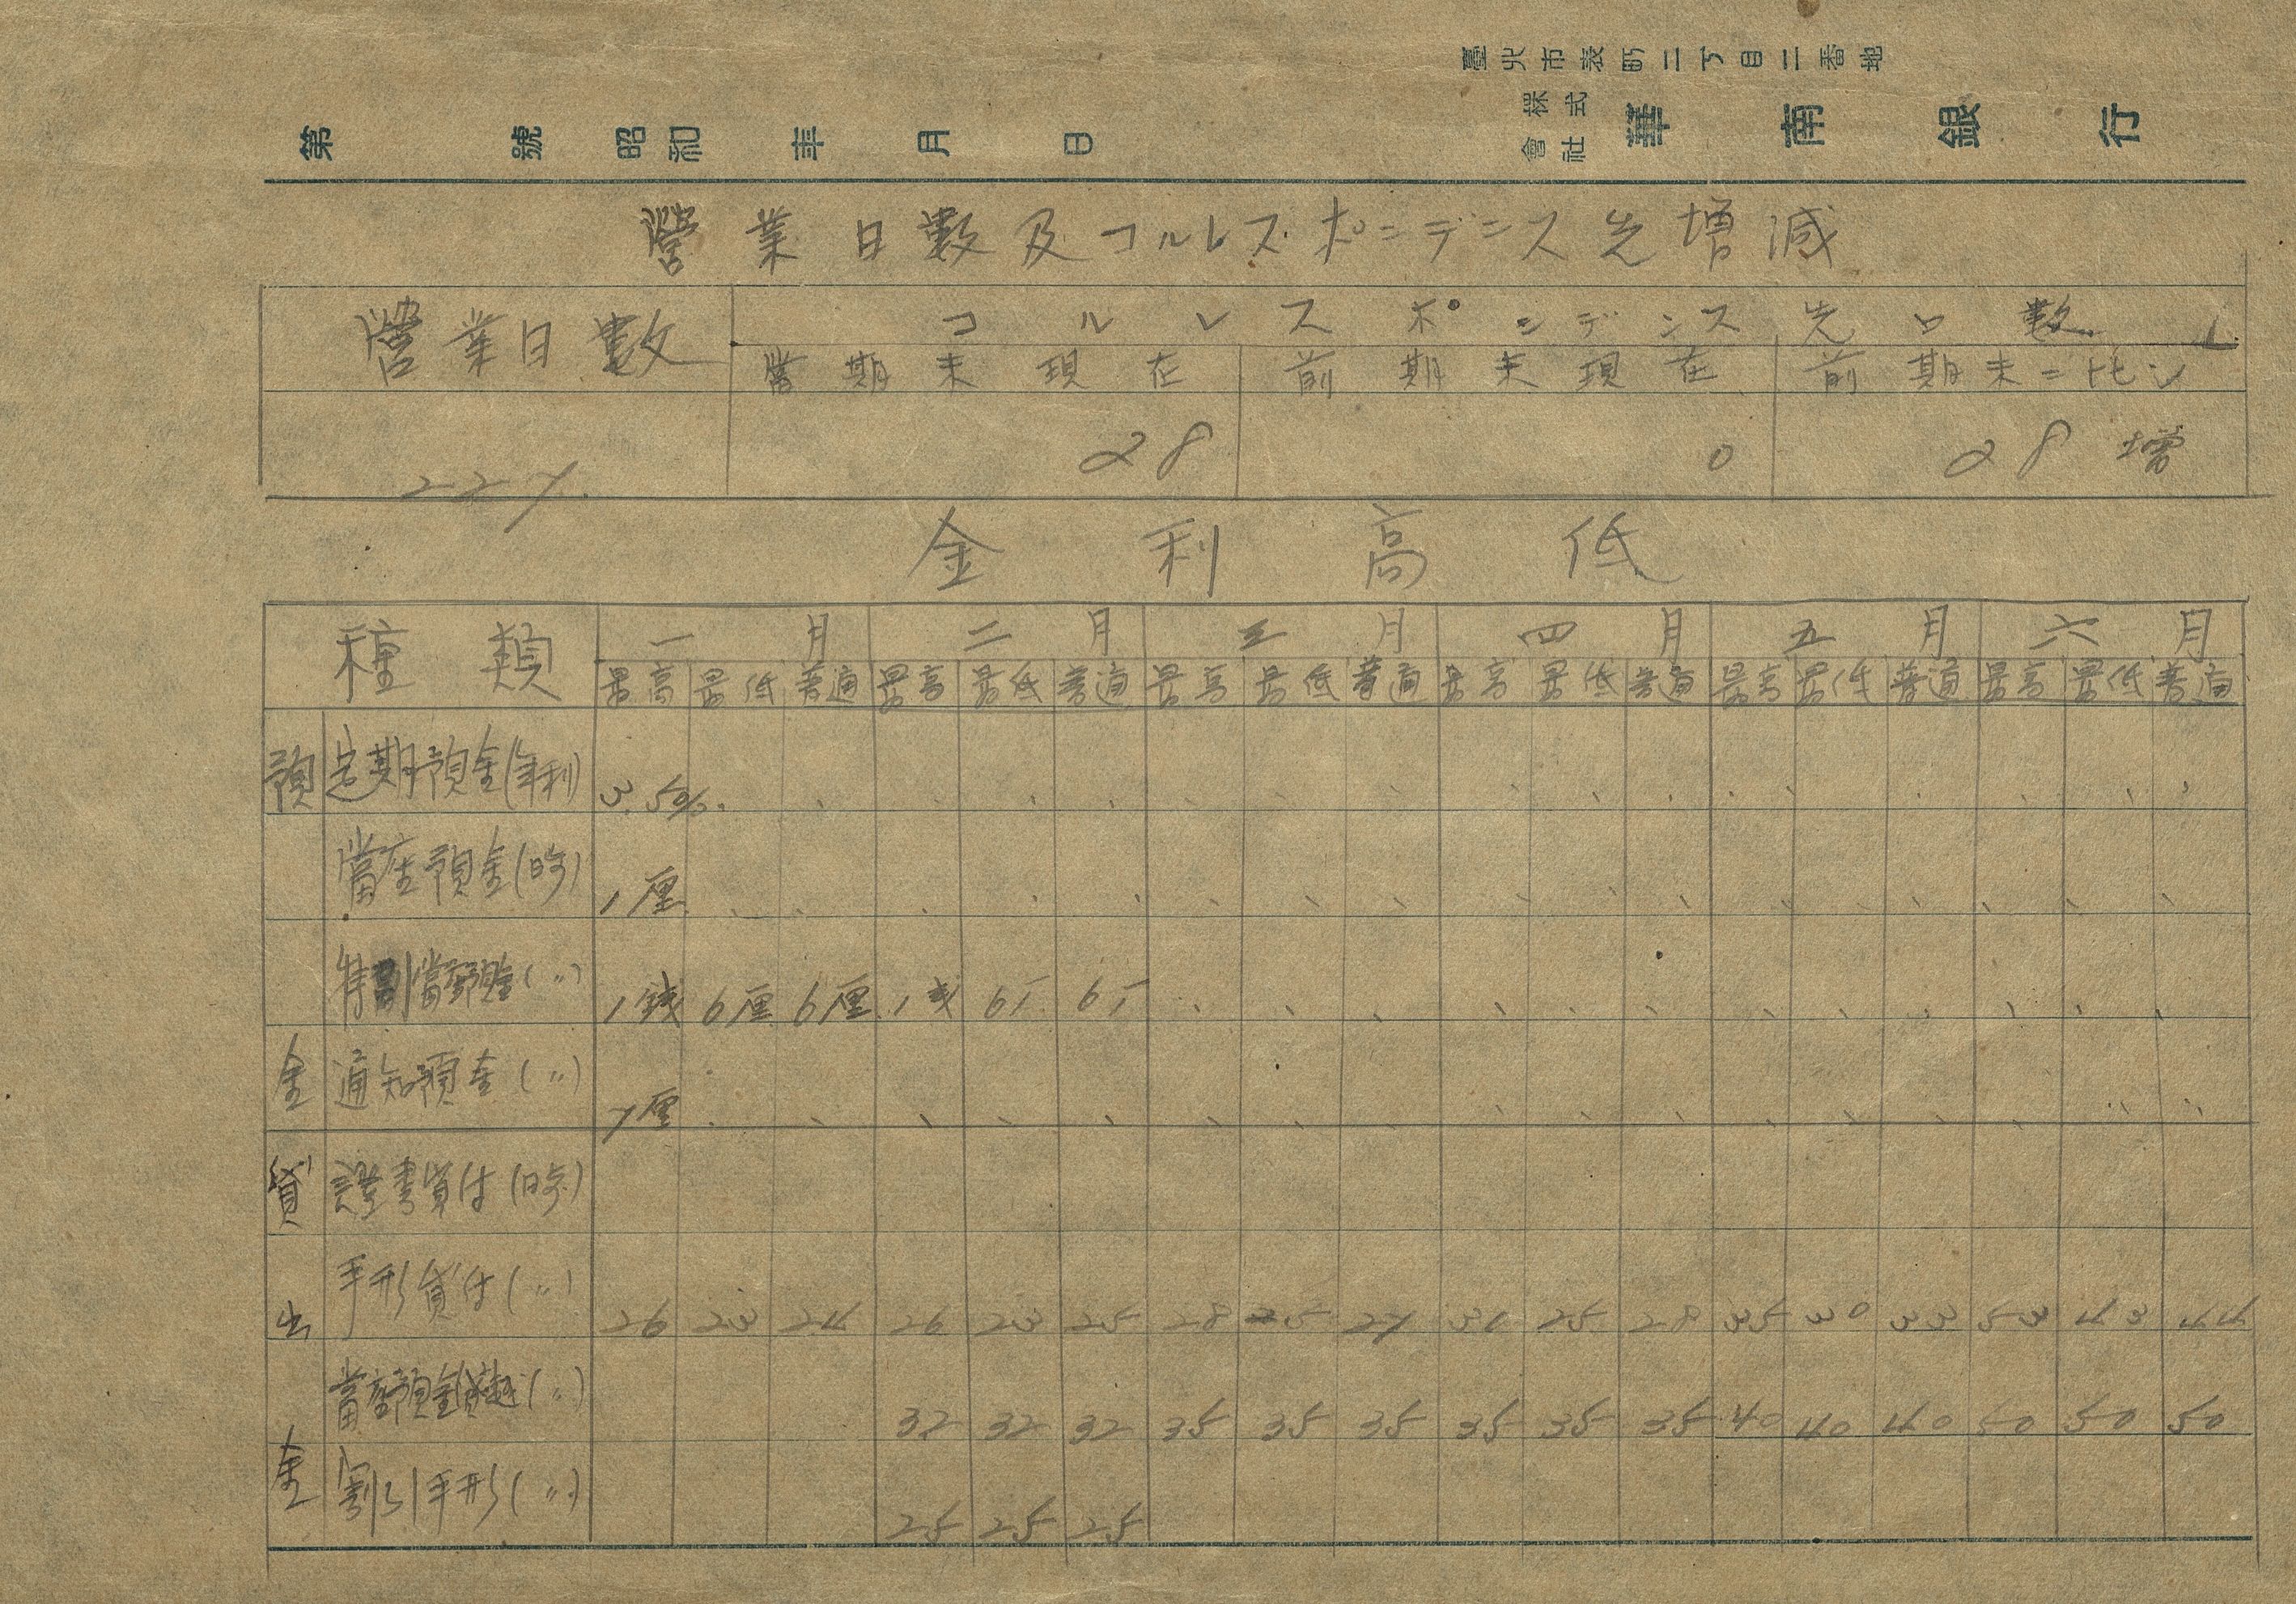 臺北市表町二丁目二番地
第 號 昭和 年 月 日 株式會社 華南銀行
營業日數及コルレスポンデンス先増減
營業日數 コルレスポンデンス先口數
當期末現在 前期末現在 前期末ニ比シ
227. 28 0 28 增
金利高低
種類 一月 二月 三月 四月 五月 六月
最高 最低 普通 最高 最低 普通 最高 最低 普通 最高 最低 普通 最高 最低 普通 最高 最低 普通
預 定期預金(年利) 3.50%
當座預金(日歩) 1厘
特別當座預金(〃) 1錢 6厘 6厘 1
金 通知預金(〃) 7厘
貸 證書貸付(日歩)
出 手形貸付(〃) 26 23 24 26 23 25 28 25 27 31 25 28 35 30 33 53 43 44
當座預金貸越(〃) 32 32 32 35 35 35 35 35 35 40 40 40 50 50 50
金 割引手形(〃) 25 25 25